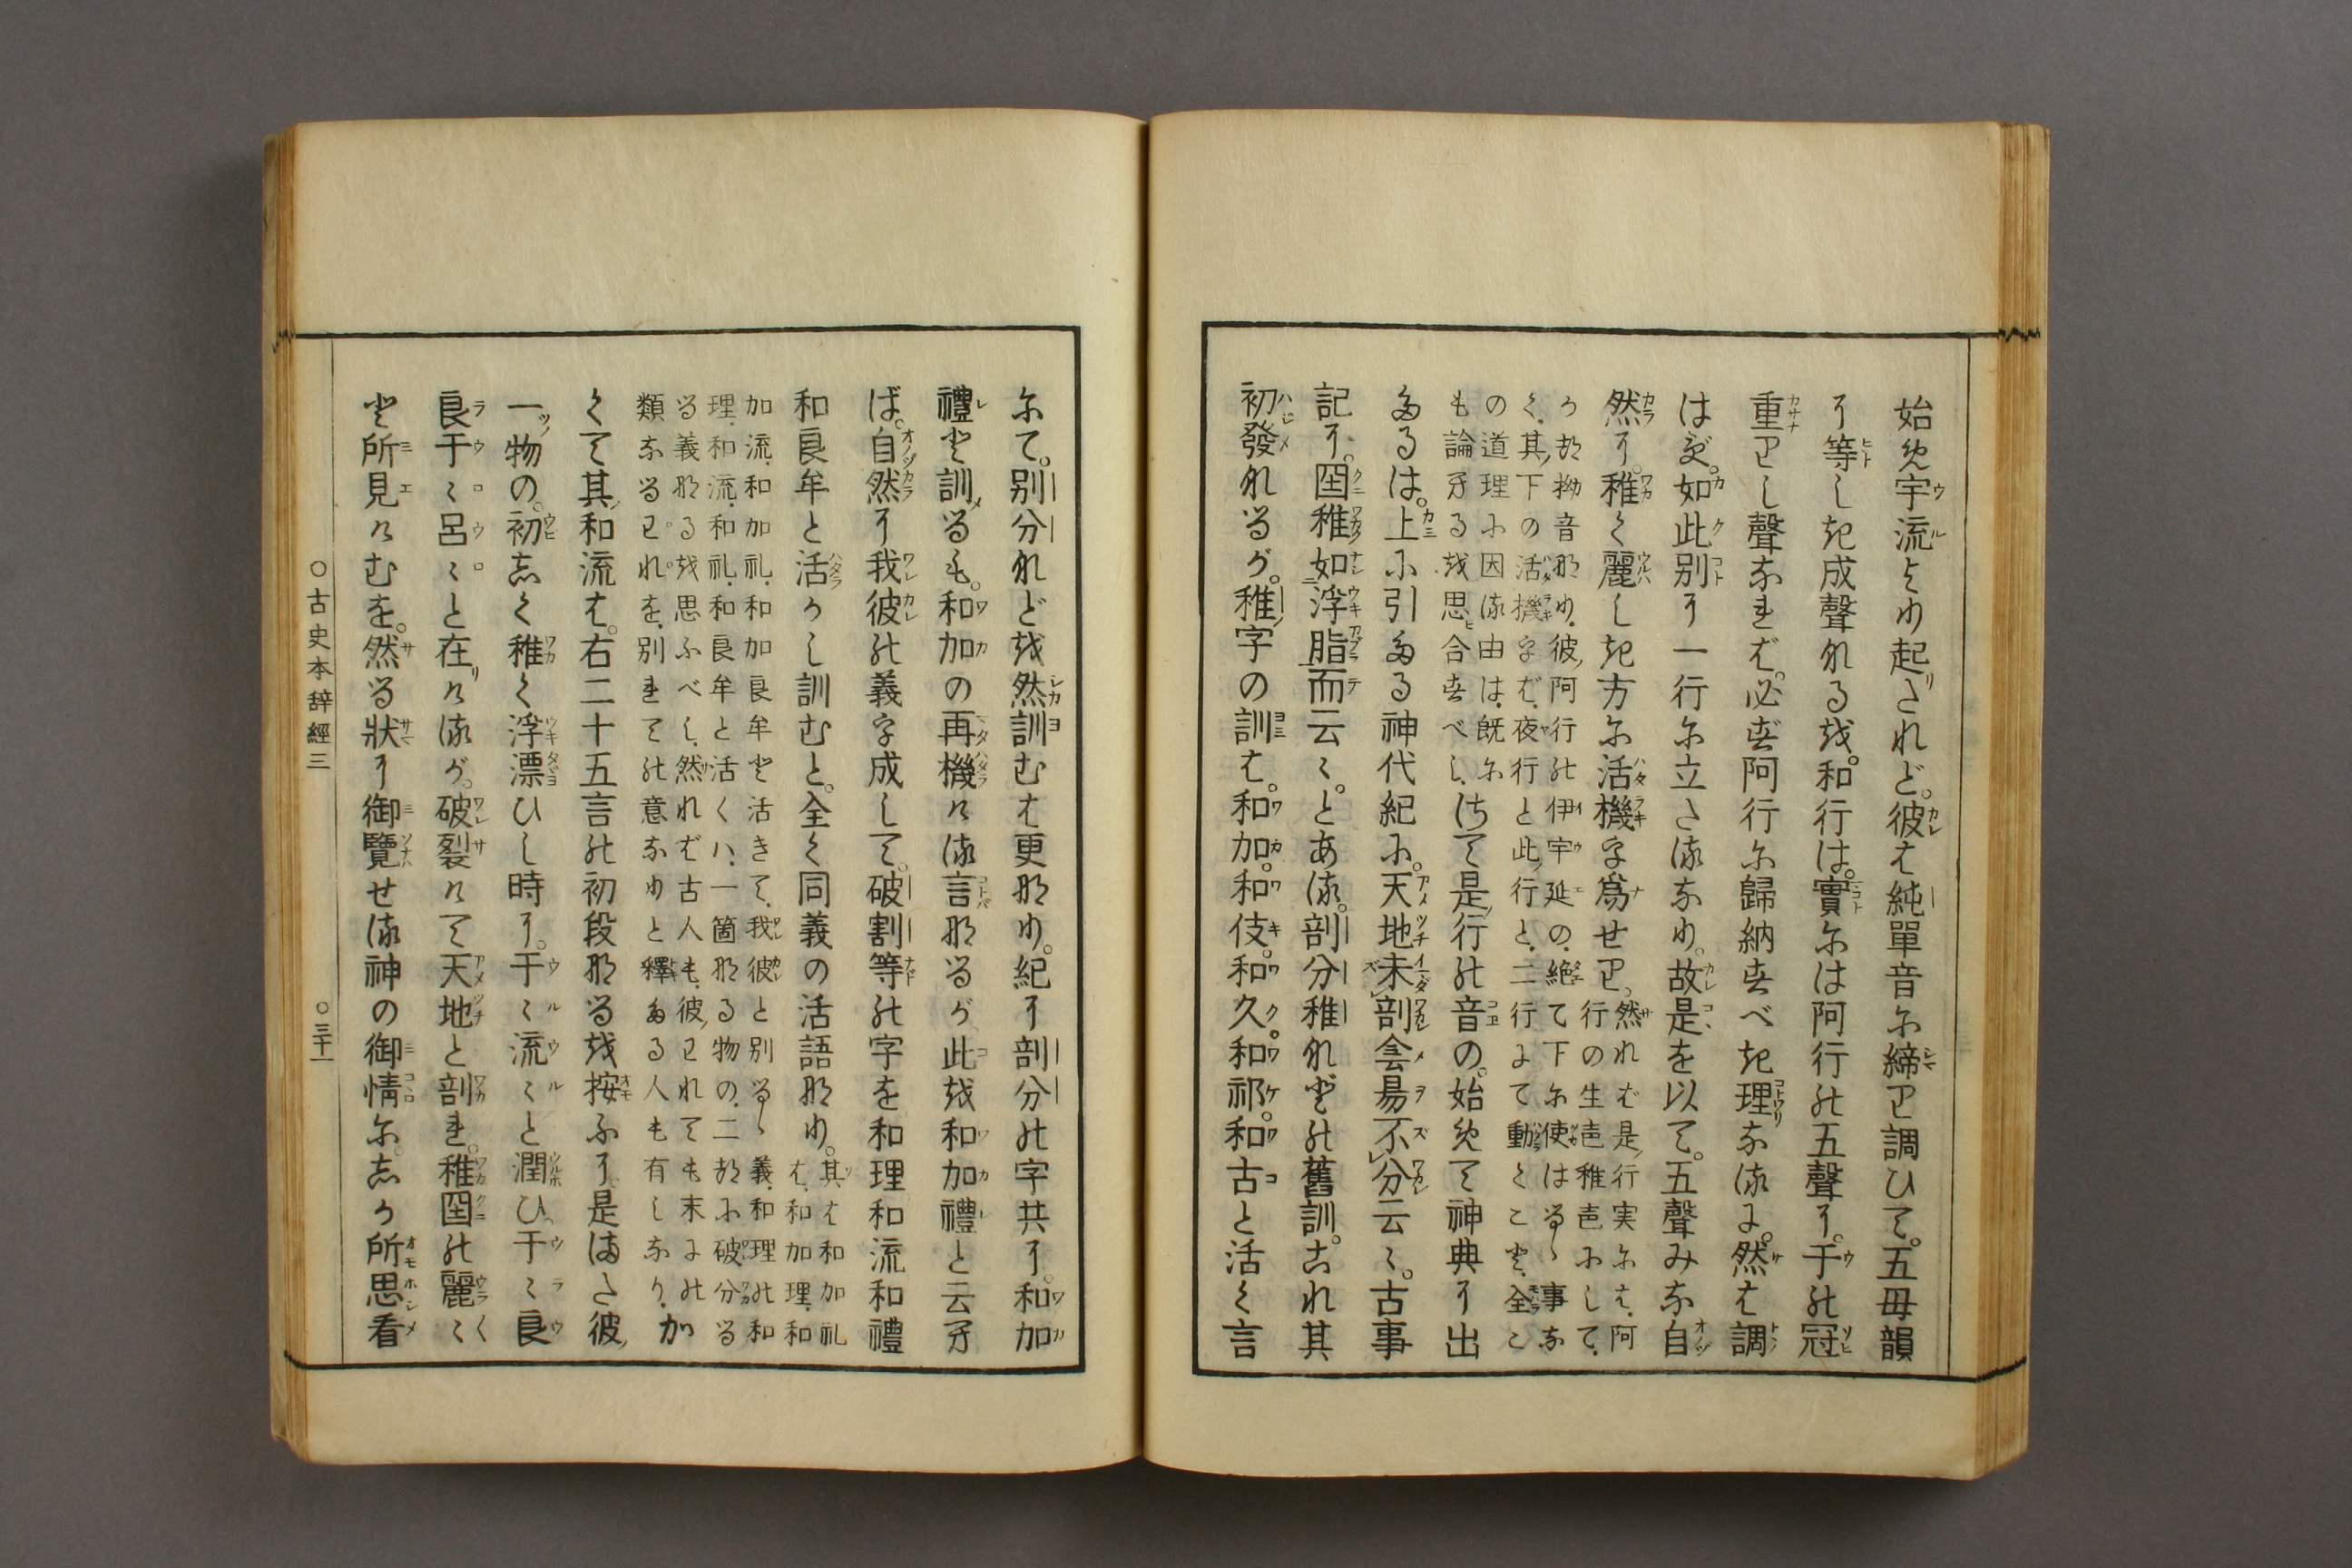 始め宇流より起されど。彼は純單音に締り調ひて。五母韻
に等しき成聲なるを。和行は。實には阿行の五聲に。于の冠
重りし聲なれば。必ず阿行に歸納すべき理なるに。然は調
はず。如此別に一行に立たるなり。故是を以て。五聲みな自
然に。稚く麗しき方に活機を爲せり。
然れば是行実には、阿
行の生邑稚邑にして、
か故拗音なり、彼阿行の伊宇延の、絶て下に使はるゝ事な
く、其下の活機をば、夜行と此行と、二行よて動くこと、全こ
の道理に因る由は、既に
も論へるを思合すべし、
さて是行の音の。始めて神典に出
たるは。上に引たる神代紀に。天地未剖侌昜不分云々。古事
記に。圀稚如浮脂而云々。とある。剖分稚などの舊訓。これ其
初發なるが。稚字の訓は。和加。和伎。和久。和祁。和古と活く言
にて。別分などを然訓むは更なり。紀に剖分の字共に。和加
禮と訓るも。和加の再機ける言なるが此を和加禮と云へ
ば。自然に我彼の義を成して。破割等の字を和理和流和禮
和良牟と活かし訓むと。全く同義の活語なり。
其は和加礼
は、和加理、和
加流、和加礼、和加良牟と活きて、我彼と別るゝ義、和理の和
理、和流、和礼、和良牟と活くハ、一箇なる物の、二故に破分る
る義なるを思ふべし、然れば古人も、彼われても末よの
類なるわれを、別れての意なりと釋たる人も有しなり、
か
くて其和流は。右二十五言の初段なるを按ふに是はた彼
一物の。初しく稚く浮漂ひし時に。于々流々と潤ひ于々良
良于々呂々と在けるが。破裂けて天地と剖れ。稚圀の麗々
と所見けむを。然る狀に御覽せる神の御情に。しか所思看
○古史本辭經三
○三十一